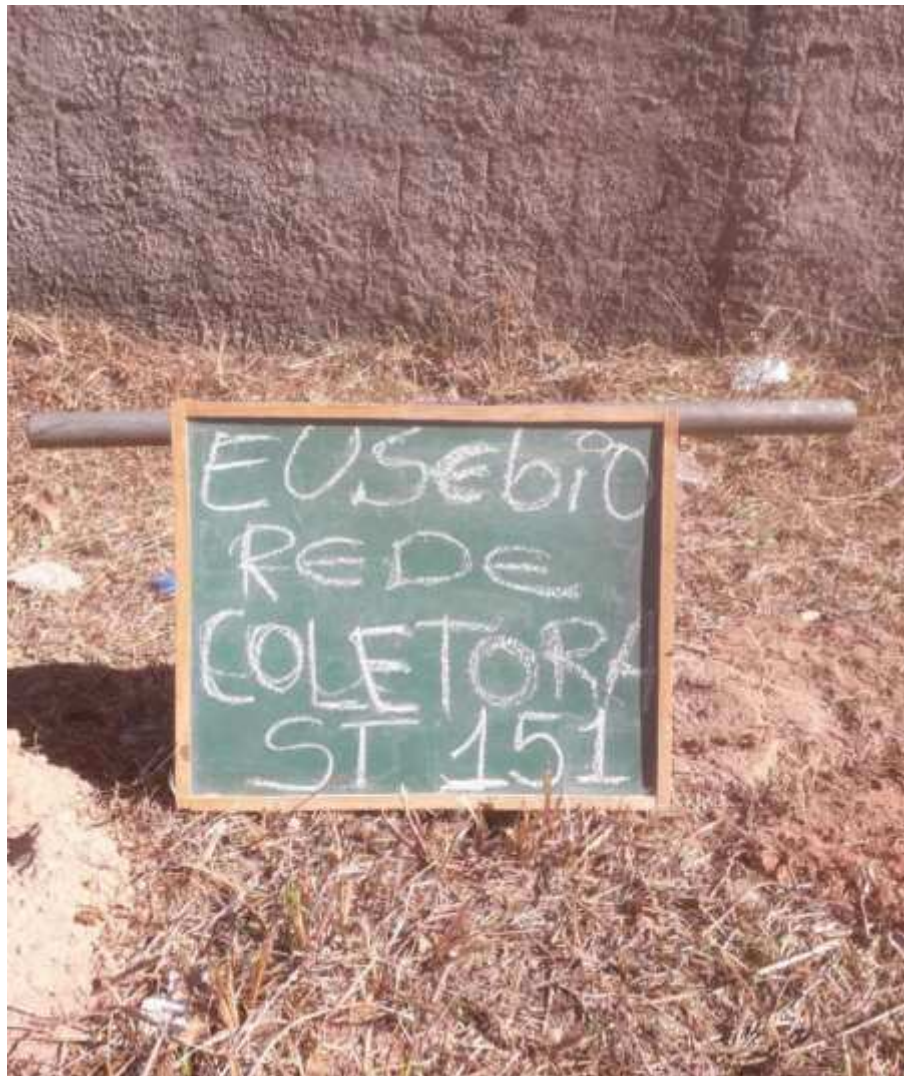 EUSEbiO
REDE
COLETORA
ST 151